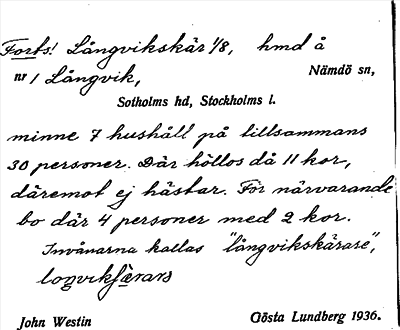 Forts! Långvikskär 1/8, hmd å
nr 1 Långvik, Nämdö sn,
Sotholms hd, Stockholms l.
minne 7 hushåll på tillsammans
30 personer. Där höllos då 11 kor,
däremot ej hästar. För närvarande
bo där 4 personer med 2 kor.
Invånarna kallas "långvikskärare",
John Westin Gösta Lundberg 1936.